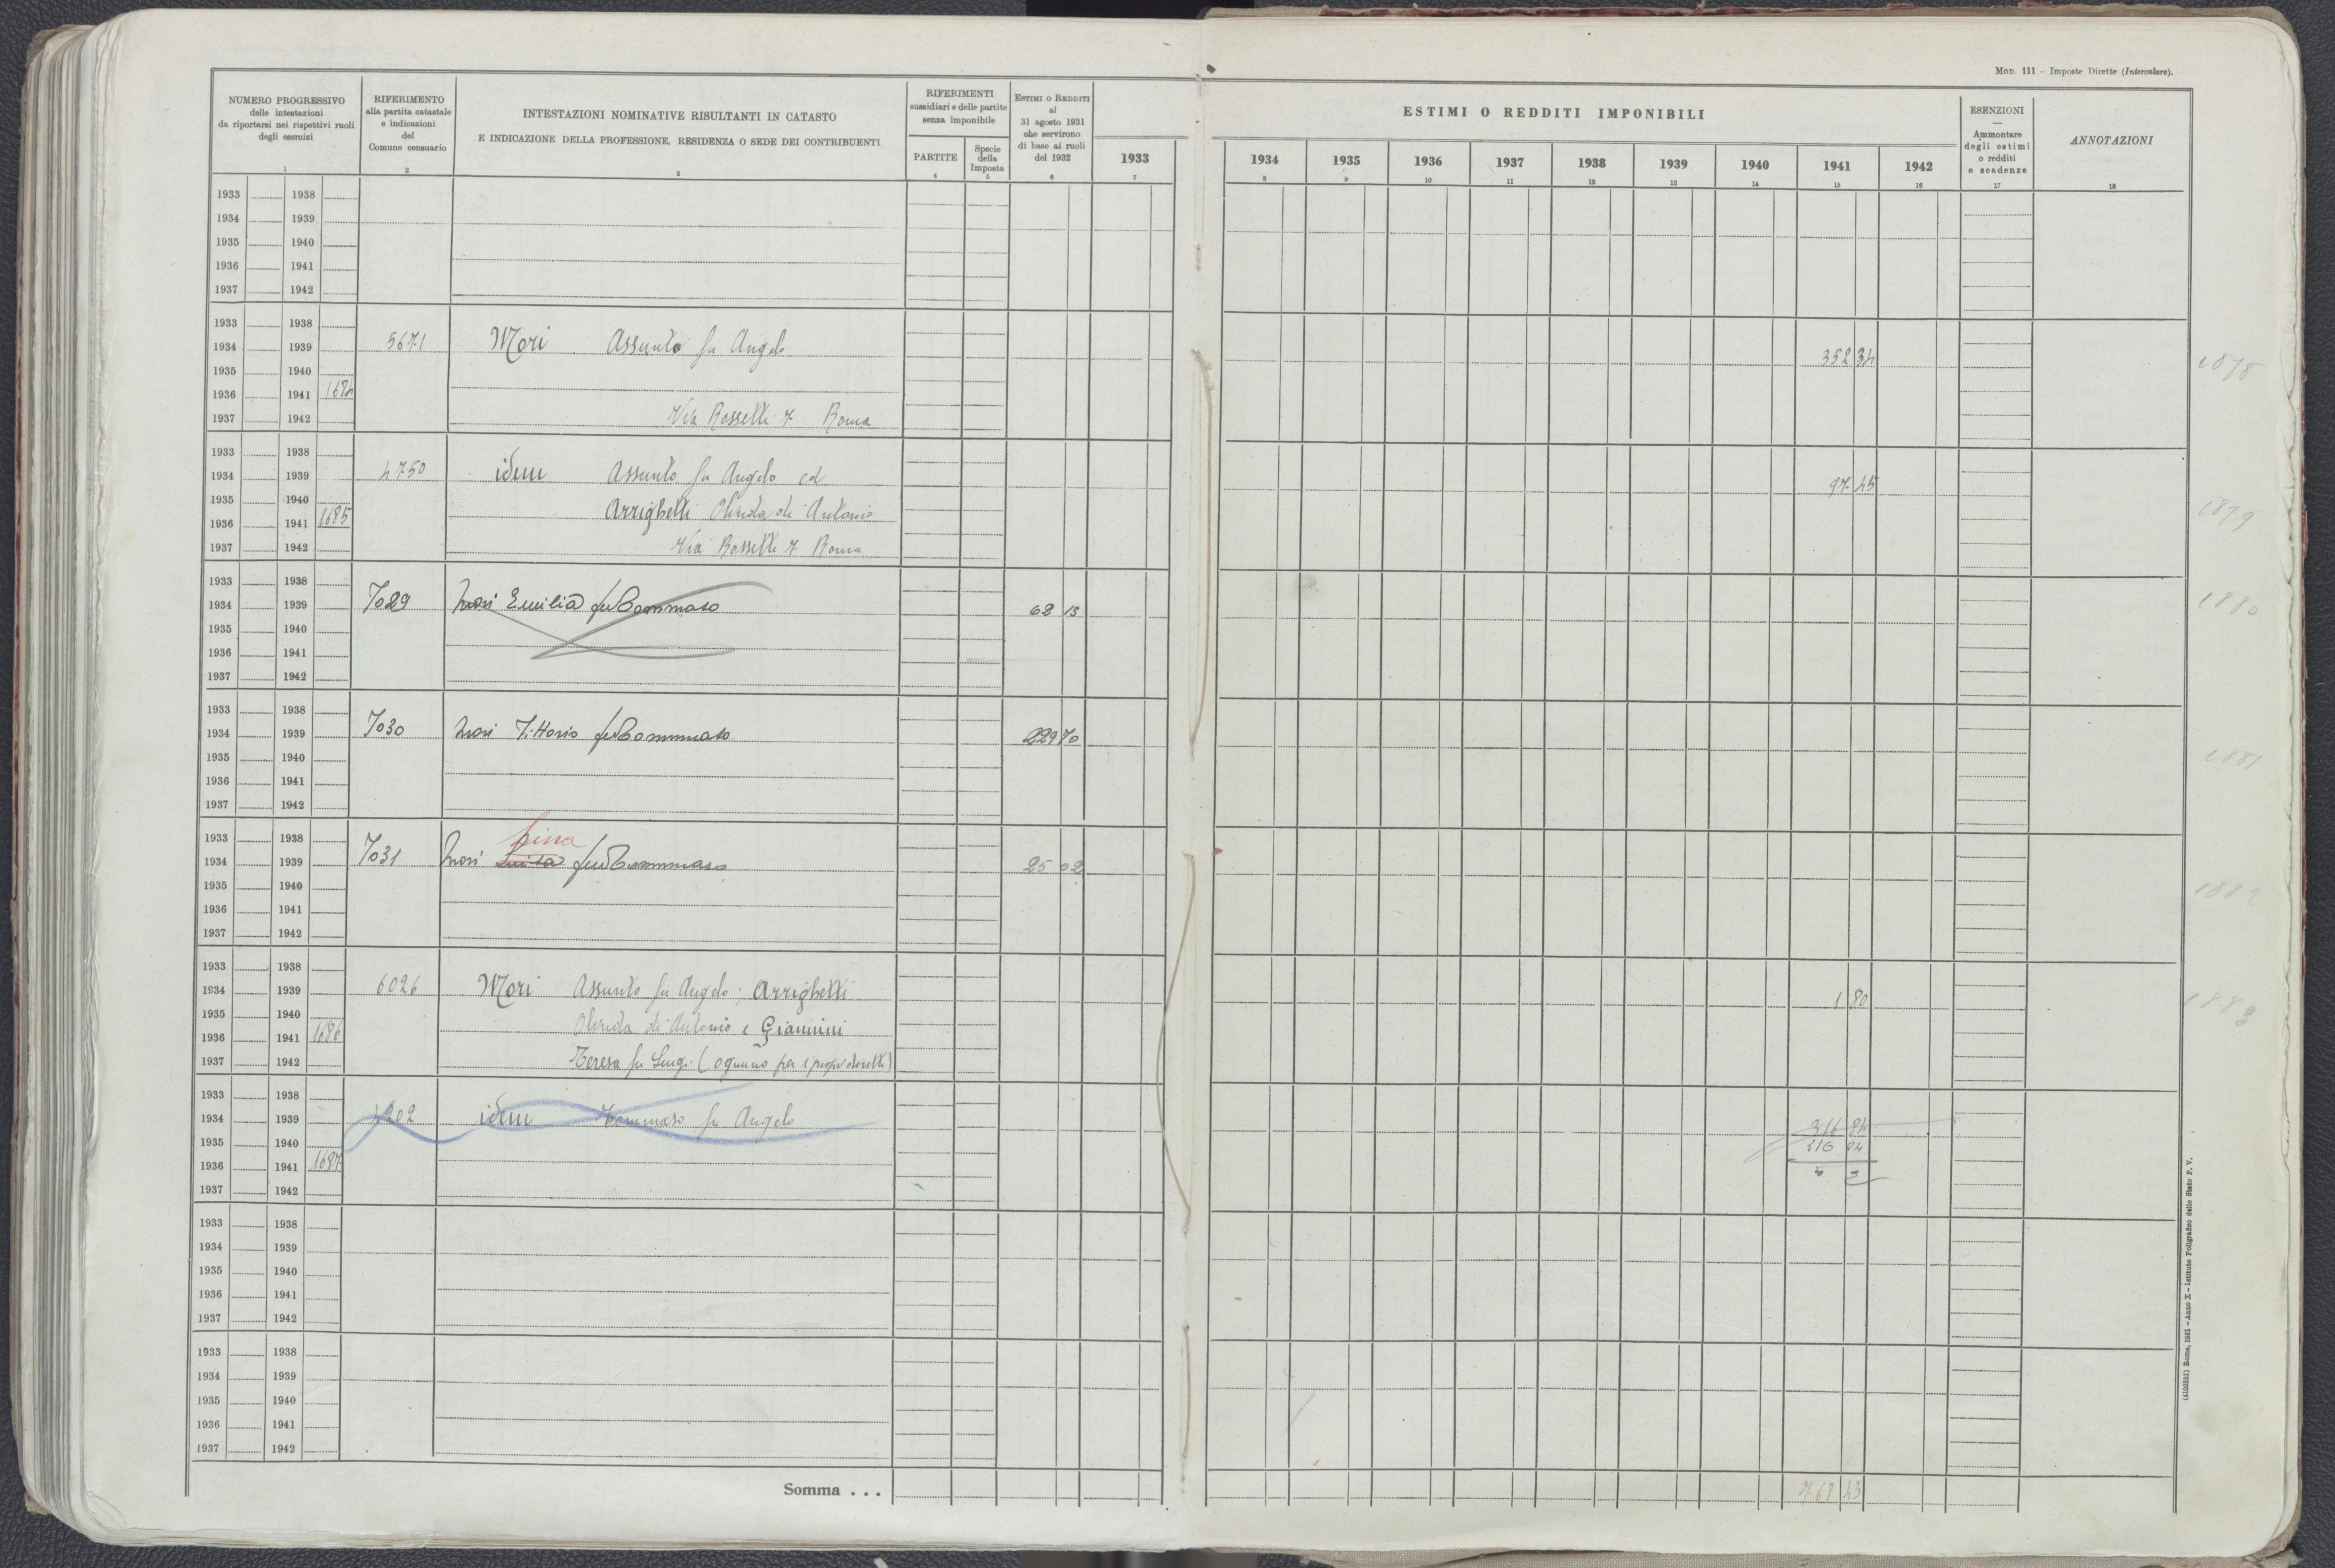 Mod. 111 – Imposte Dirette (Intercalare).
NUMERO PROGRESSIVO
delle intestazioni
da riportarsi nei rispettivi ruoli
degli esercizi
1
RIFERIMENTO
alla partita catastale
e indicazioni
del
Comune censuario
2
INTESTAZIONI NOMINATIVE RISULTANTI IN CATASTO
E INDICAZIONE DELLA PROFESSIONE, RESIDENZA O SEDE DEI CONTRIBUENTI
3
RIFERIMENTI
sussidiari e delle partite
senza imponibile
PARTITE
4
Specie
della
Imposta
5
ESTIMI O REDDITI
al
31 agosto 1931
che servirono
di base ai ruoli
del 1932
6
1933
7
ESTIMI O REDDITI IMPONIBILI
1934 1935 1936 1937 1938 1939 1940 1941 1942
8 9 10 11 12 13 14 15 16
ESENZIONI
—
Ammontare
degli estimi
o redditi
e scadenze
17
ANNOTAZIONI
18
1933 1938
1934 1939
1935 1940
1936 1941
1937 1942
1933 1938
1934 1939 5671 Mori Assunto fu Angelo 352 34 1878
1935 1940
1936 1941 1684
1937 1942 Via Rosselli 7 Roma
1933 1938
1934 1939 4750 idem Assunto fu Angelo ed 97 45
1935 1940 Arrighetti Olinda di Antonio 1879
1936 1941 1685
1937 1942 Via Rosselli 7 Roma
1933 1938
1934 1939 7029 Mori Emilia fu Tommaso 62 13 1880
1935 1940
1936 1941
1937 1942
1933 1938
1934 1939 7030 Mori Vittorio fu Tommaso 229 70
1935 1940 1881
1936 1941
1937 1942
1933 1938 Lina
1934 1939 7031 Mori Luisa fu Tommaso 25 02
1935 1940 1882
1936 1941
1937 1942
1933 1938
1934 1939 6026 Mori Assunto fu Angelo; Arrighetti 1 80 1883
1935 1940 Olinda di Antonio e Giannini
1936 1941 1686
1937 1942 Teresa fu Luigi (ognuno per i propri diritti)
1933 1938
1934 1939 4202 idem Tommaso fu Angelo 316 84
1935 1940 316 84
1936 1941 1687
1937 1942
1933 1938
1934 1939
1935 1940
1936 1941
1937 1942
1933 1938
1934 1939
1935 1940
1936 1941
1937 1942
Somma . . . 768 43
(4103531) Roma, 1931 – Anno X – Istituto Poligrafico dello Stato P. V.